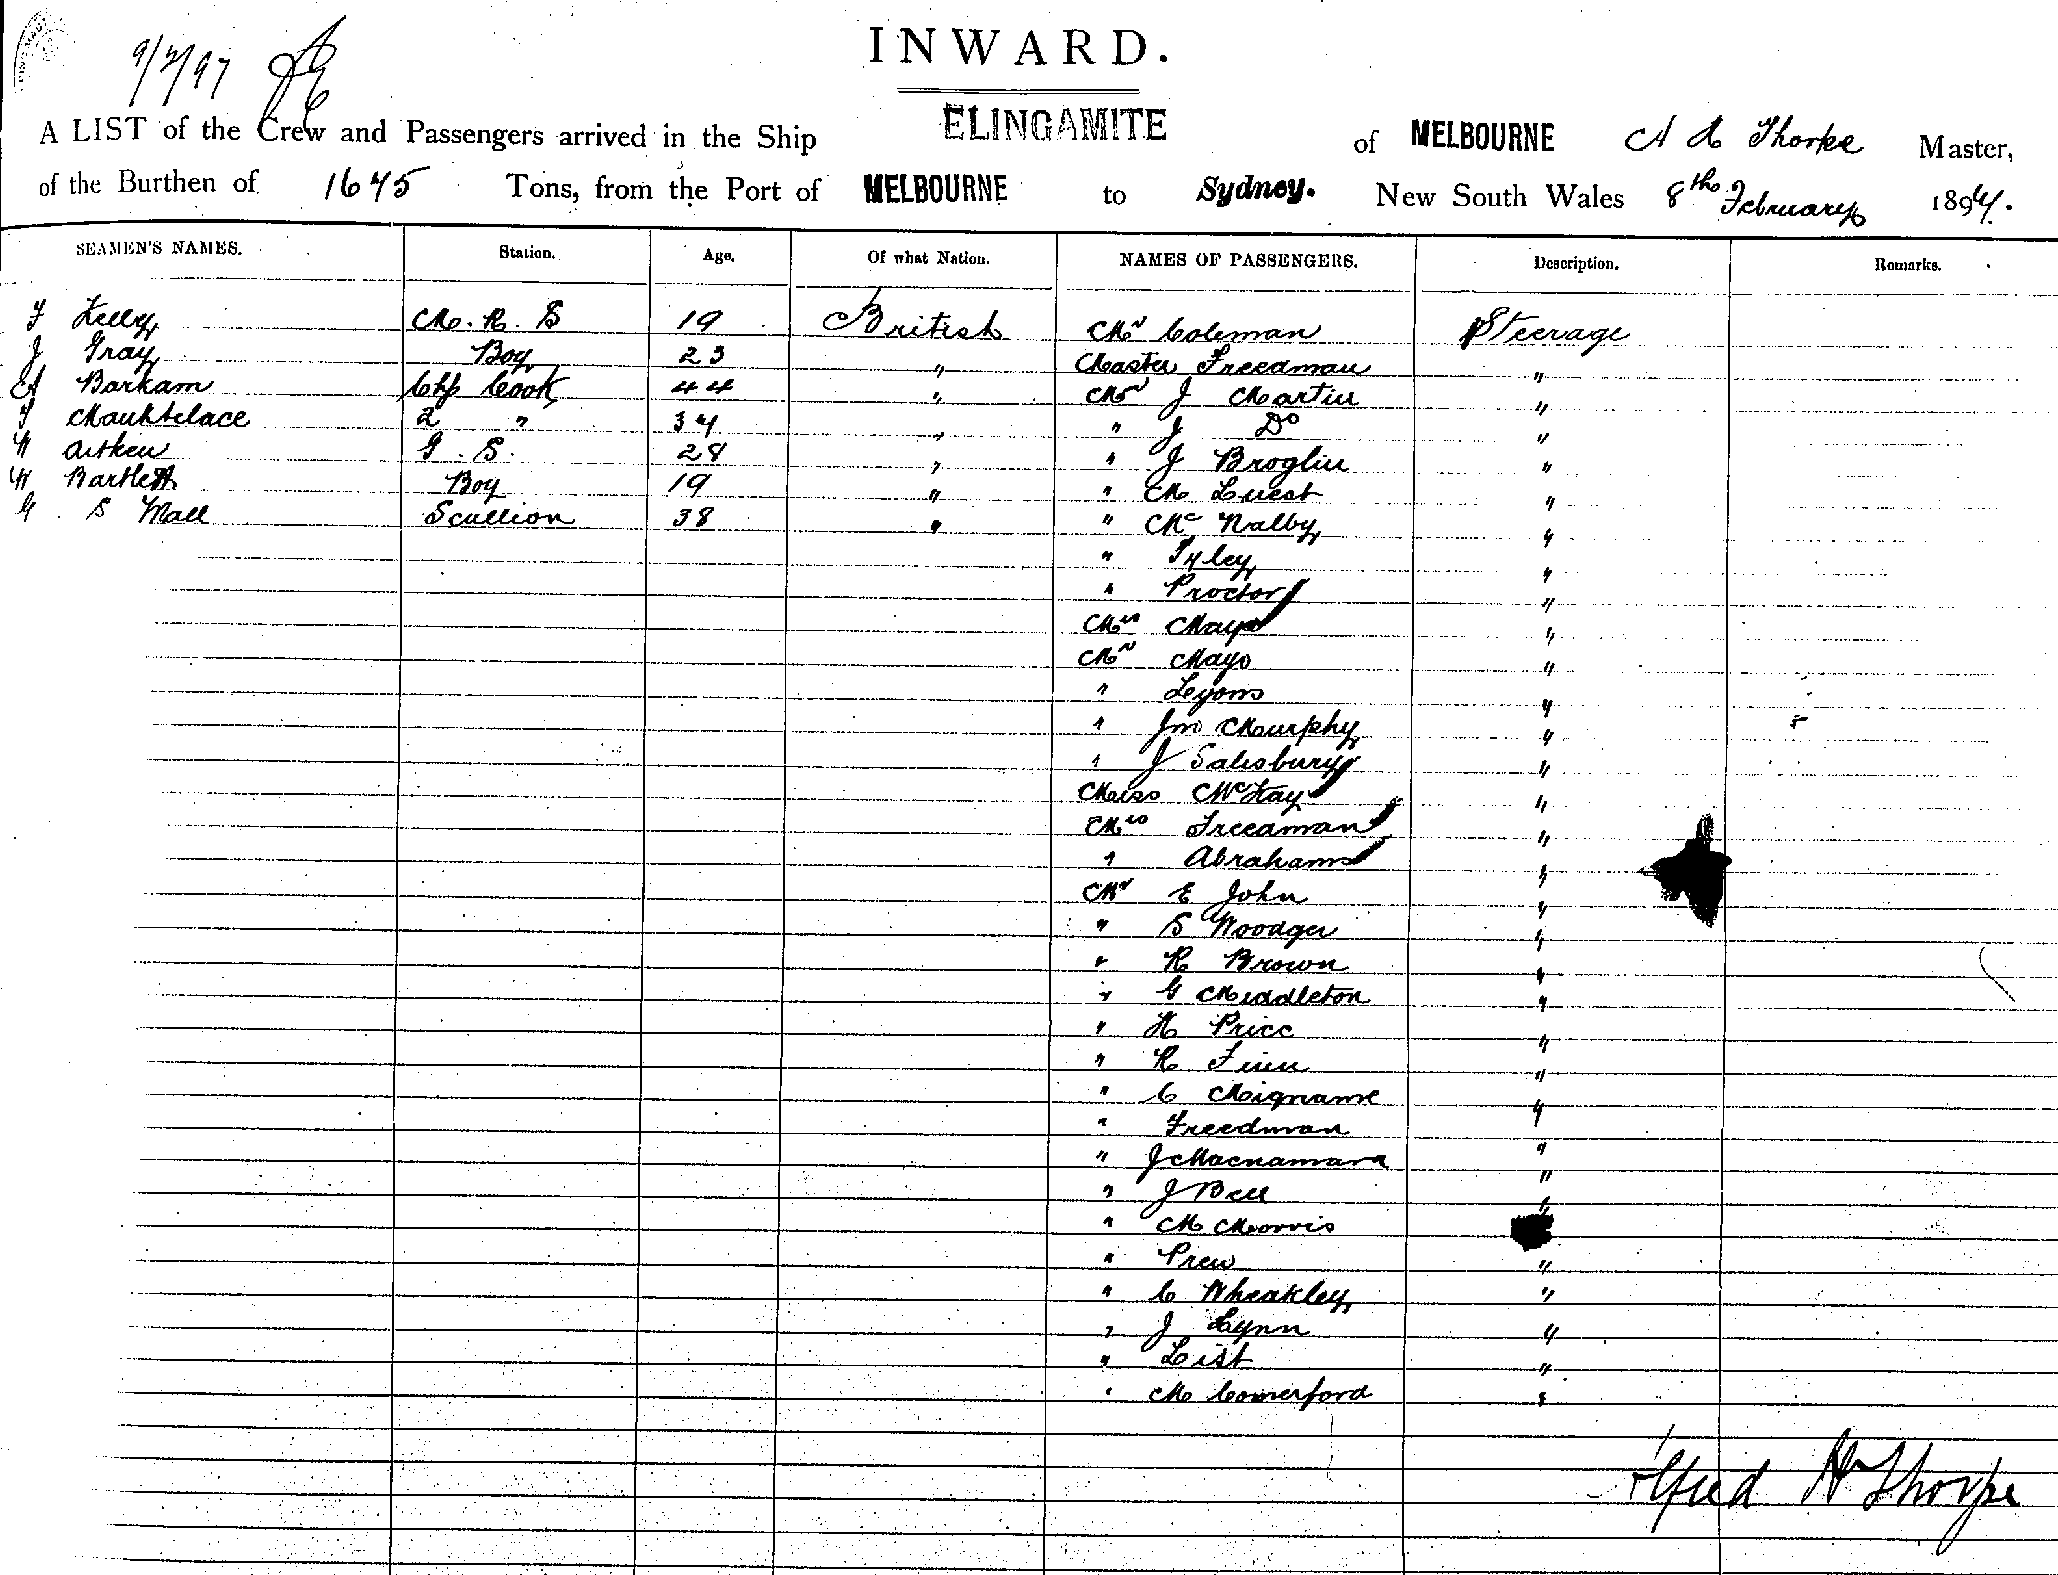 9/2/97
INWARD.
A LIST of the Crew and Passengers arrived in the Ship ELINGAMITE of MELBOURNE A H Thorpe Master,
of the Burthen of 1675 Tons, from the Port of MELBOURNE to Sydney. New South Wales 8th February 1897.
SEAMEN'S NAMES. Station. Age. Of what Nation. NAMES OF PASSENGERS. Description. Remarks.
F Kelly M. R. S 19 British Mr Coleman Steerage
J Gray Boy 23 " Master Freedman "
A Barham Chf Cook 44 " Mr J Martin "
2 " 34 " " J Do "
W Aitken G. S. 28 " " J Broglin "
W Bartlett Boy 19 " " M Luest "
G S Mall Scullion 38 " " Mc Nalby "
" Tyley "
" Proctor "
Mrs Mayo "
Mr Mayo "
" Lyons "
" Jno Murphy "
" J Salisbury "
Miss McKay "
Mrs Freedman "
" Abrahams "
Mr E John "
" S Woodger "
" R Brown "
" G Middleton "
" H Price "
" R Finn "
" C "
" Freedman "
" J Macnamara "
" J Bell "
" M Morris
" Prew "
" C Wheakley "
" J Lynn "
" List "
" M Comerford "
Alfred H Thorpe